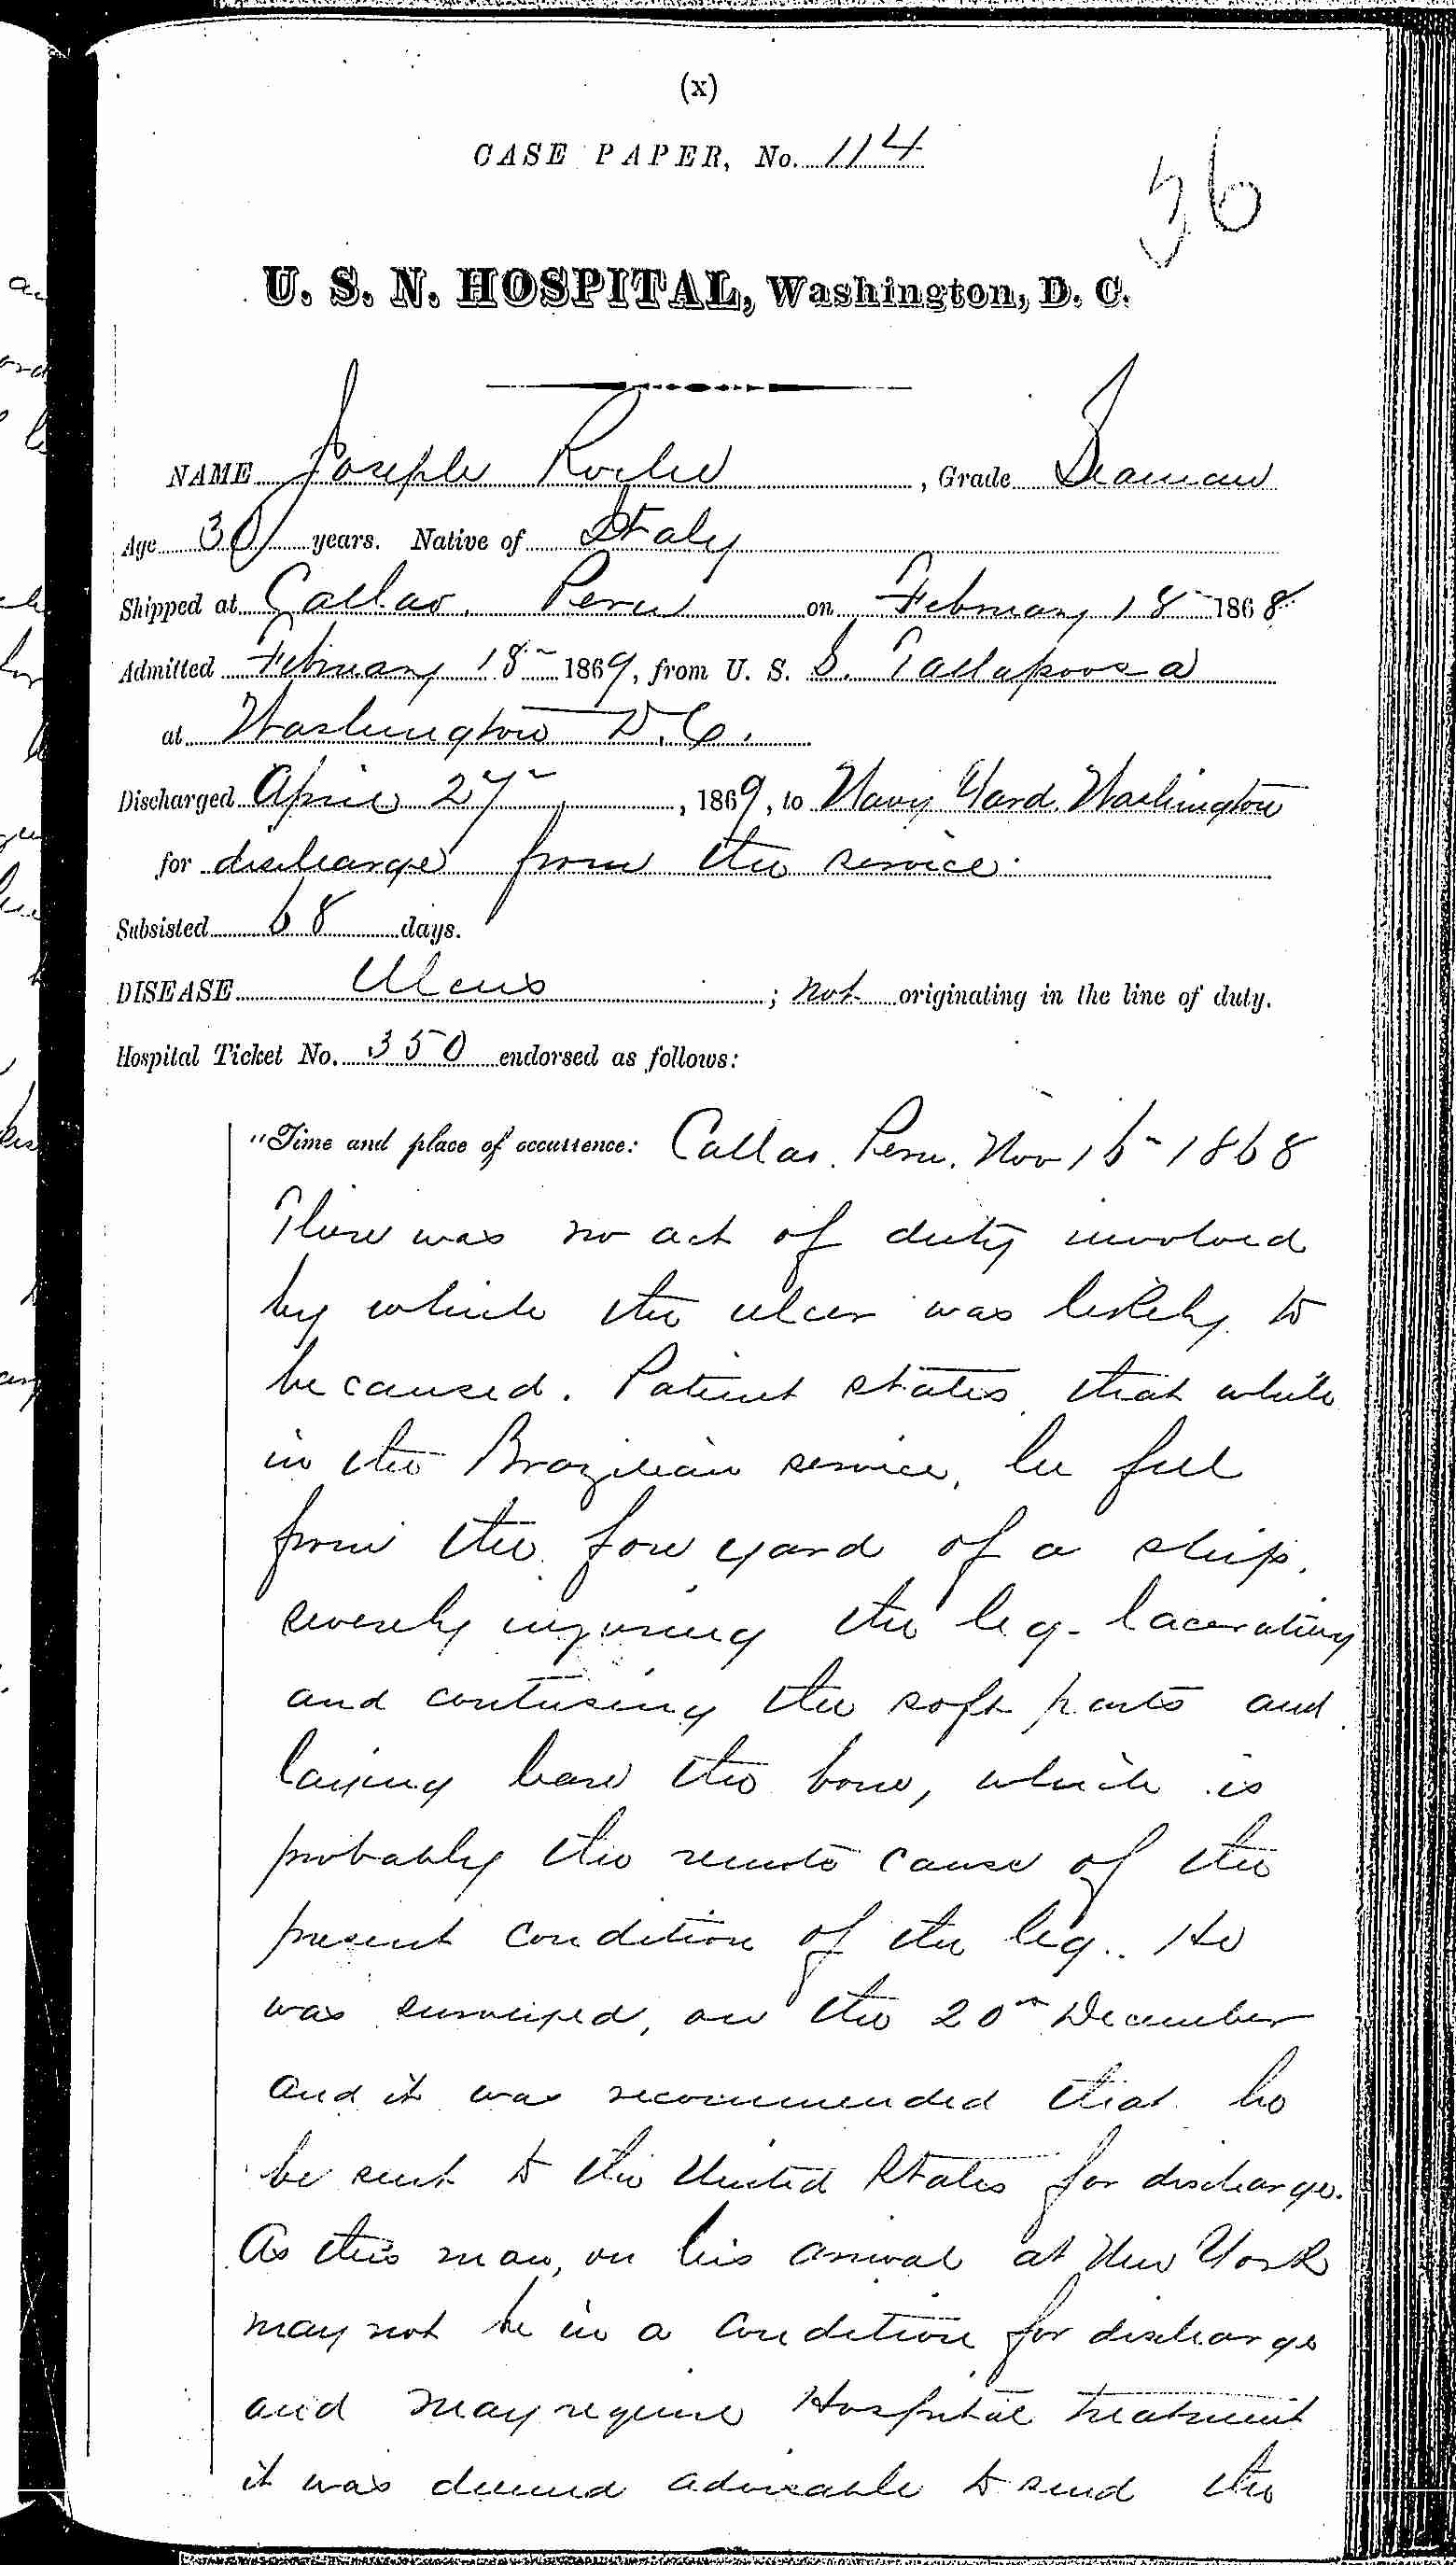 (x)
CASE PAPER, No. 114
36
U. S. N. HOSPITAL, Washington, D. C.
NAME Joseph Roche, Grade Seaman
Age 30 years. Native of Italy
Shipped at Callao. Peru on February 18" 1868
Admitted February 18" 1869, from U. S. S. Tallapoosa
at Washington D.C.
Discharged April 27", 1869, to Navy Yard. Washington
for discharge from the service.
Subsisted 68 days.
DISEASE Ulcus; not originating in the line of duty.
Hospital Ticket No. 350 endorsed as follows:
"Time and place of occurrence: Callao. Peru. Nov 16" 1868
There was no act of duty involved
by which the ulcer was likely to
be caused. Patient states that while
in the Brazilian service, he fell
from the fore yard of a ship,
severely injuring the leg- lacerating
and contusing the soft parts and
laying bare the bone, which is
probably the remote cause of the
present condition of the leg. He
was surveyed, on the 20" December
and it was recommended that he
be sent to the United States for discharge.
As this man, on his arrival at New York
may not be in a condition for discharge
and may require Hospital treatment
it was deemed adviseable to send the